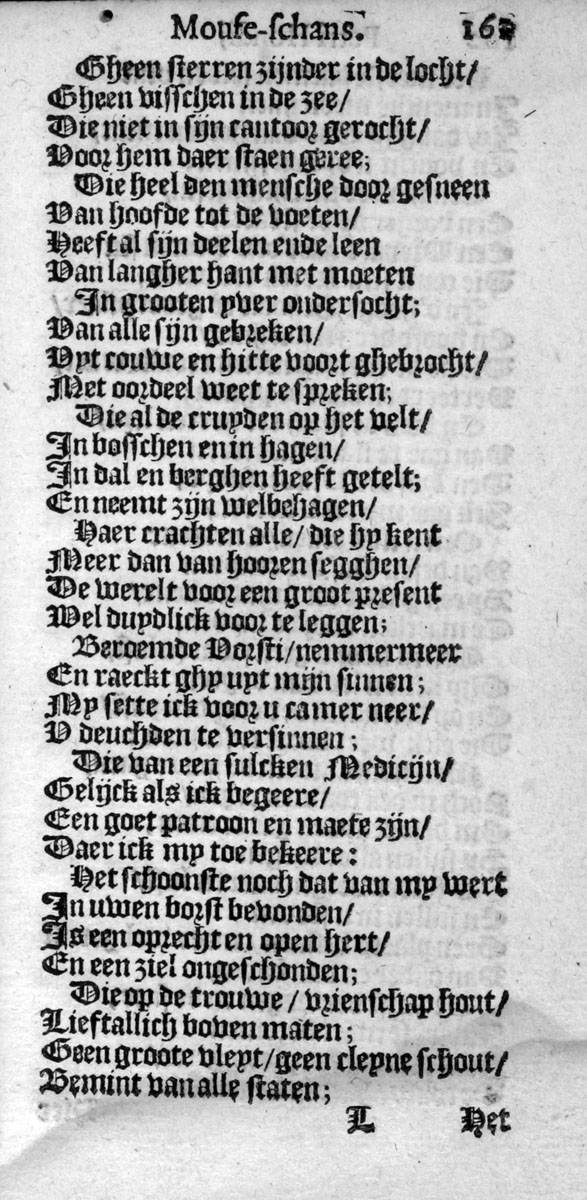 Mouse-schans. 161
Gheen sterren zijnder in de locht/
Gheen visschen in de zee/
Die niet in sijn cantoor gerocht/
Voor hem daer staen geree;
Die heel den mensche door gesneen
Van hoofde tot de voeten/
Heeft al sijn deelen ende leen
Van langher hant met moeten
In grooten yver ondersocht;
Van alle sijn gebreken/
Uyt couwe en hitte voort ghebrocht/
Met oordeel weet te spreken;
Die al de cruyden op het velt/
In bosschen en in hagen/
In dal en berghen heeft getelt;
En neemt zijn welbehagen/
Haer crachten alle/ die hy kent
Meer dan van hooren segghen/
De werelt voor een groot present
Wel duydlick voor te leggen;
Beroemde Vorsti/nemmermeer
En raeckt ghy uyt mijn sinnen;
My sette ick voor u camer neer/
V deuchden te versinnen;
Die van een sulcken Medicijn/
Gelijck als ick begeere/
Een goet patroon en maete zijn/
Daer ick my toe bekeere:
Het schoonste noch dat van my wert
In uwen borst bevonden/
Is een oprecht en open hert/
En een ziel ongeschonden;
Die op de trouwe/ vrienschap hout/
Lieftallich boven maten;
Geen groote vleyt/geen cleyne schout/
Bemint van alle staten;
L Het